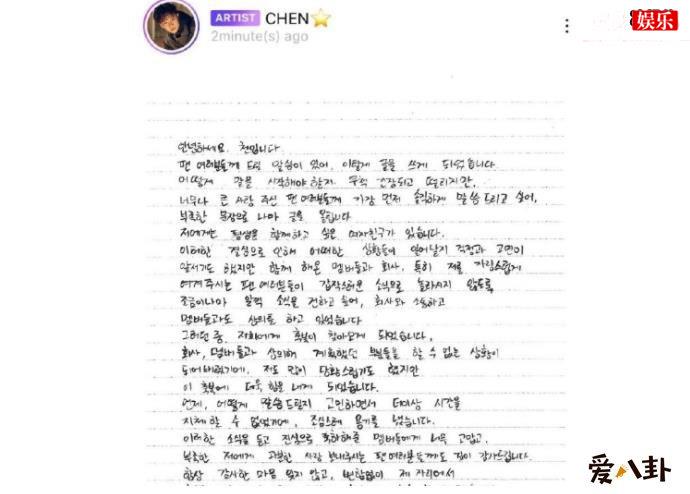 ARTIST CHEN
2minute(s) ago
娱乐
안녕하세요. 첸입니다.
팬 여러분들께 드릴 말씀이 있어, 이렇게 글을 쓰게 되었습니다
어떻게 말을 시작해야 할지 무척 긴장되고 떨리지만,
너무나 큰 사랑 주신 팬 여러분들께 가장 먼저 솔직하게 말씀드리고 싶어,
부족한 문장으로 나마 글을 올립니다
저에게는 평생을 함께하고 싶은 여자친구가 있습니다.
이러한 결심으로 인해 어떠한 상황들이 일어날지 걱정과 고민이
앞서기도 했지만 함께 해온 멤버들과 회사, 특히 저를 자랑스럽게
여겨주시는 팬 여러분들이 갑작스러운 소식으로 놀라시지 않도록
조금이나마 일찍 소식을 전하고 싶어, 회사와 소통하고
멤버들과도 상의를 하고 있었습니다
그러던 중, 저희에게 축복이 찾아오게 되었습니다,
회사, 멤버들과 상의해 계획했던 부분들을 할 수 없는 상황이
되어버렸기에, 저도 많이 당황스럽기도 했지만
이 축복에 더욱 힘을 내게 되었습니다.
언제, 어떻게 말씀드릴지 고민하면서 더이상 시간을
지체할 수 없었기에, 조심스레 용기를 냈습니다.
이러한 소식을 듣고 진심으로 축하해준 멤버들에게 너무 고맙고,
부족한 저에게 과분한 사랑 보내주시는 팬 여러분들께도 깊이 감사드립니다.
항상 감사한 마음 잊지 않고, 변함없이 제 자리에서
爱八卦